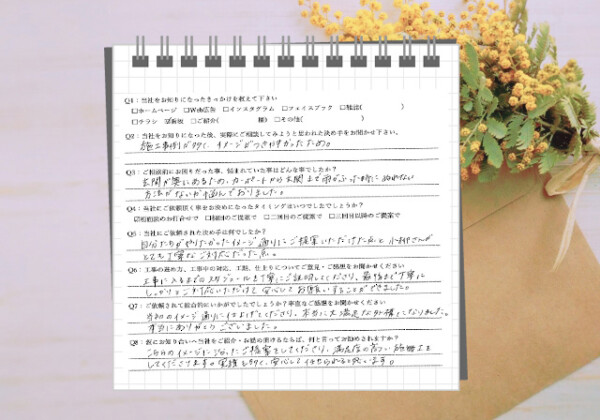 Q1：当社をお知りになったきっかけを教えて下さい
□ホームページ □Web広告 □インスタグラム □フェイスブック □雑誌( )
□チラシ ☑看板 □ご紹介( 様) □その他( )
Q2：当社をお知りになった後、実際にご相談してみようと思われた決め手をお聞かせ下さい。
施工事例が多く、イメージがつきやすかったため。
Q3：ご相談前にお困りだった事、悩まれていた事はどんな事でしたか？
玄関が奥にあるため、カーポートから玄関まで雨がふった時にぬれない
方法がないか悩んでおりました。
Q4：当社にご依頼頂く事をお決めになったタイミングはいつでしたでしょうか？
☑相談お打合せで □初回のご提案で □二回目のご提案で □三回目以降のご提案で
Q5：当社にご依頼された決め手は何でしたか？
自分たちがやりたかったイメージ通りにご提案いただけた点と小林さんが
とても丁寧なご対応だった点。
Q6：工事の進め方、工事中の対応、工期、仕上りについてご意見・ご感想をお聞かせください
工事に入るまでのスケジュールを丁寧にご説明してくださり、最後まで丁寧に
しっかりとご対応いただけて安心してお願いすることができました。
Q7：ご依頼されて総合的にいかがでしたでしょうか？率直なご感想をお聞かせください
当初のイメージ通りに仕上げてくださり、本当に大満足な外構になりました。
本当にありがとうございました。
Q8：仮にお知り合いへ当社をご紹介・お勧め頂けるならば、何と言ってお勧めされますか？
自分のイメージに沿ったご提案をしてくださり、満足度の高い施工を
してくださりますの 実績も多く、安心して任せられると思います。